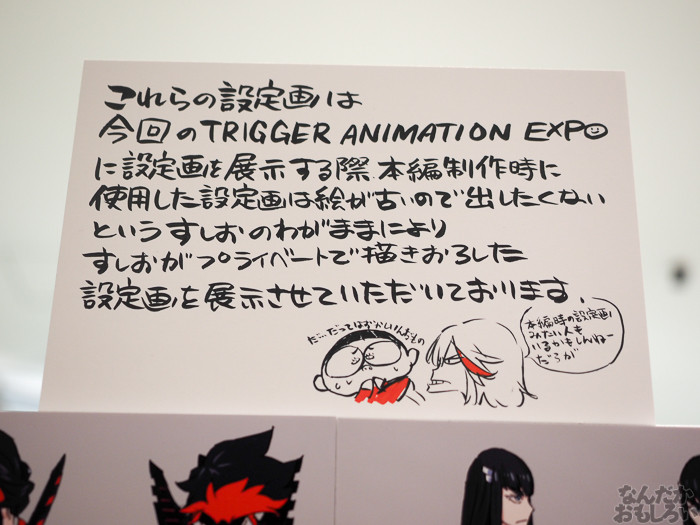 これらの設定画は
今回のTRIGGER ANIMATION EXPO
に設定画を展示する際、本編制作時に
使用した設定画は絵が古いので出したくない
というすしおのわがままにより
すしおがプライベートで描きおろした
設定画を展示させていただいております。
だ…だってはずかしいんだもの
本編時の設定画
みたい人も
いるかもしんねー
だろが
なんだか
おもしろい